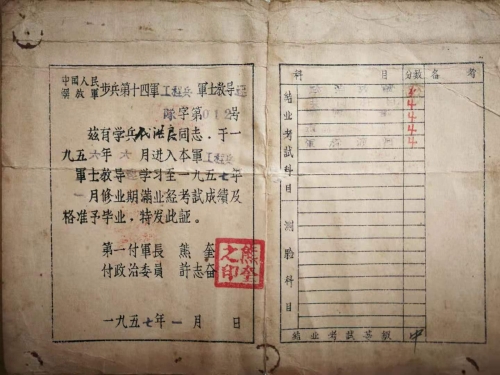 中國人民
解放軍 步兵第十四軍工程兵軍士教導
隊字第012号
茲有学兵 洪良同志，于一
九五六年六月进入本軍工程兵
軍士教导 学习至一九五七年
一月修业期滿业經考試成績及
格准予毕业，特发此証。
第一付軍長 熊奎
付政治委員 許志奋
熊奎
之印
一九五七年一月 日
科 目 分数 备考
結业考試科目
4
4
4
4
測驗科目
結业考試等級 中